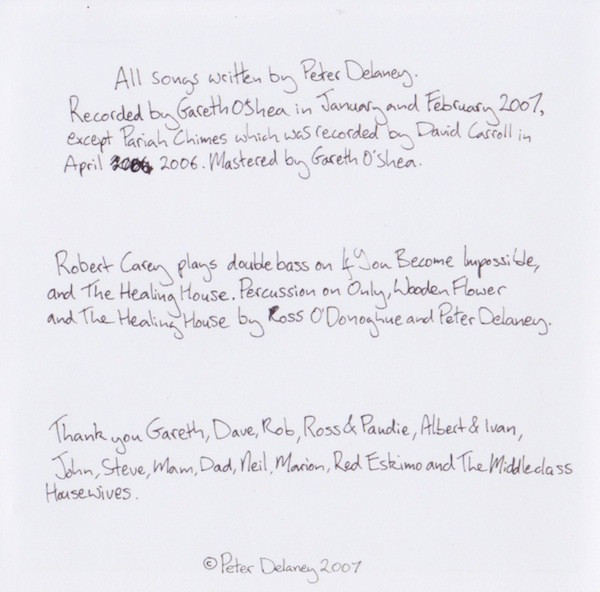 All songs written by Peter Delaney.
Recorded by Gareth O'Shea in January and February 2007,
except Pariah Chimes which was recorded by David Carroll in
April 2006. Mastered by Gareth O'Shea.
Robert Carey plays double bass on If You Become Impossible,
and The Healing House. Percussion on Only, Wooden Flower
and The Healing House by Ross O'Donoghue and Peter Delaney.
Thank you Gareth, Dave, Rob, Ross & Paudie, Albert & Ivan,
John, Steve, Mam, Dad, Neil, Marion, Red Eskimo and The Middleclass
Housewives.
© Peter Delaney 2007